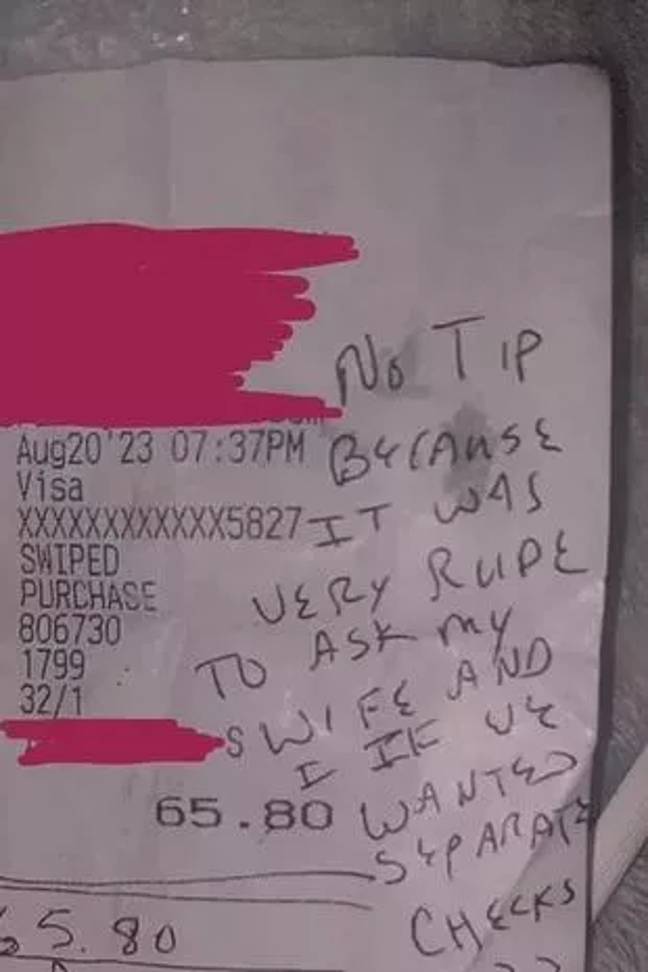 No TIP
Aug20'23 07:37PM BECAUSE
Visa
XXXXXXXXXXXX5827 IT WAS
SWIPED
PURCHASE VERY RUDE
806730 TO ASK MY
1799
32/1 WIFE AND
S I IF WE
65.80 WANTED
SEPARATE
65.80 CHECKS